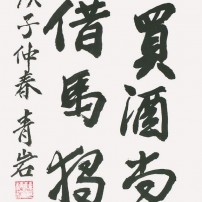 買酒尚
借馬獨
庚子仲春青岩